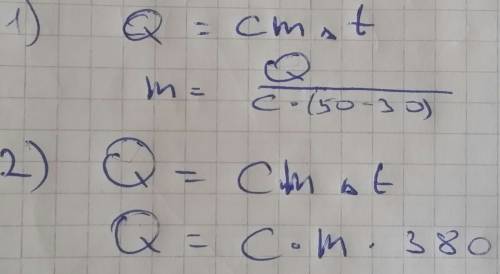 1) Q = cm △ t
m = Q / c · (50 - 30)
2) Q = cm △ t
Q = c · m · 380